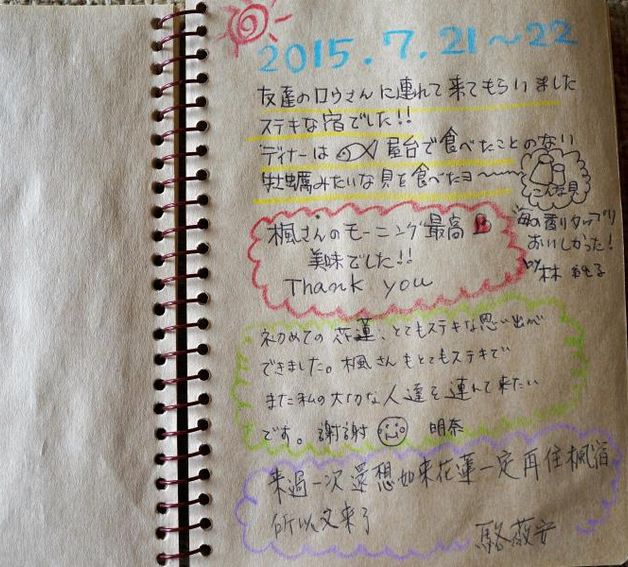 2015.7.21〜22
友達のロウさんに連れて来てもらいました
ステキな宿でした!!
ディナーは 屋台で食べたことのない
牡蠣みたいな貝を食べたヨ〜
こんな貝
海の香りタップリ
おいしかった!
by 林
楓さんのモーニング最高
美味でした!!
Thank you
初めての花蓮、とてもステキな思い出が
できました。楓さんもとてもステキで
また私の大切な人達を連れて来たい
です。謝謝 明奈
来過一次還想如来花蓮一定再住楓宿
所以又来了
駱薇安